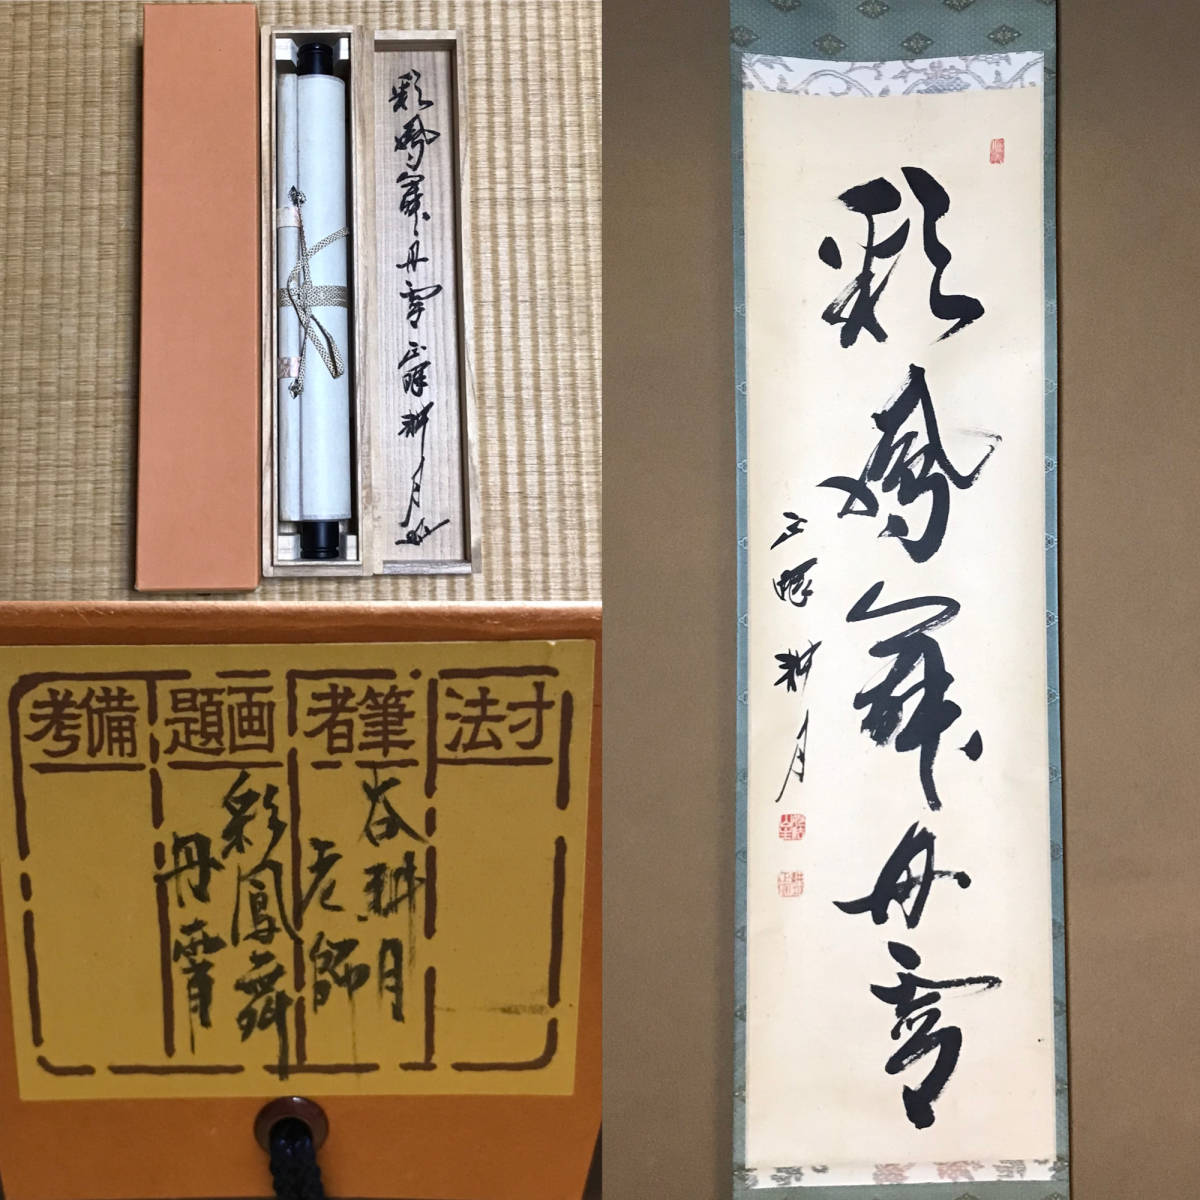 彩鳳舞丹霄 正眼 耕月
寸法
筆者
画題
備考
谷耕月
老師
彩鳳舞
丹霄
彩鳳舞丹霄
正眼 耕月